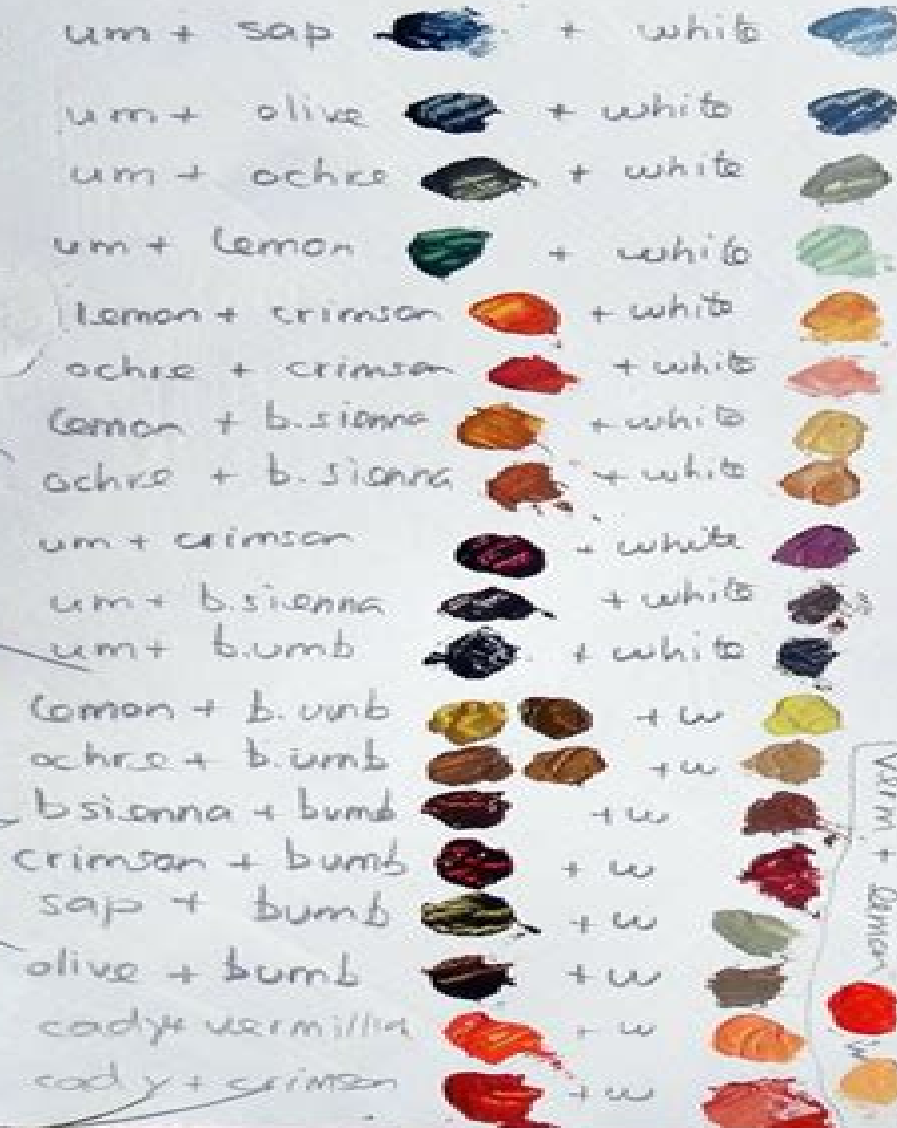 um + sap + white
um + olive + white
um + ochre + white
um + lemon + white
Lemon + crimson + white
ochre + crimson + white
lemon + b.sienna + white
ochre + b.sienna + white
um + crimson + white
um + b.sienna + white
um + b.umb + white
lemon + b.umb + w
ochre + b.umb + w
bsienna + bumb + w
crimson + bumb + w
sap + bumb + w
olive + bumb + w
cady + w
cad y + crimson + w
Verm + lemon